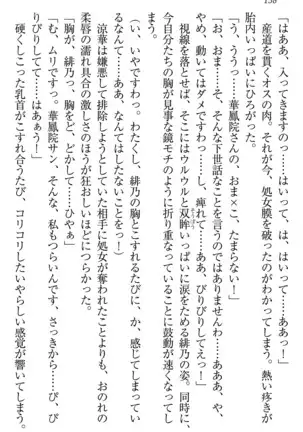 150
「はああ、入ってきますっ……はいって、は、はいって……ああっ」
産道を貫くオスの肉。それが今、処女膜を破りました。熱い疼きが
胎内いっぱいにひろがった。
「う、ううっ……華鳳院さんの、おま×こ、たまらない！」
「お、おま……そ、そんな下世話なことを言うのではありませんわ……ああ、や、
やめ、動いてはダメですわっ……し、痺れて……ああ、びりびりしてえっ！」
視線を落とせば、そこにはウルウルと双眸いっぱいに涙をためる緋乃の姿。同時に、
今自分たちの胸が見事な鏡モチのように折り重なっていることに鼓動が速くなってし
まう。
（い、いやですわっ。わたくし、緋乃の胸とこすれるたびに、か、感じてしまってい
るなんて……ああ、なんてはしたないことをっ！）
涼華は嫌悪して排除しようとしていた相手に処女が奪われたことよりも、おのれの
柔唇の濡れ具合の激しさのほうが狂おしいほどにつらかった。
「胸が、緋乃っ、胸をど、どかして……ひやぁ」
「む、ムリですっ。華鳳院サン、そんな、私もつらいんです、さっきから……び、び
りびりして……はあぅ！」
硬くしこった乳首がこすれ合うたび、コリコリしたいやらしい感覚が響いてしまう。